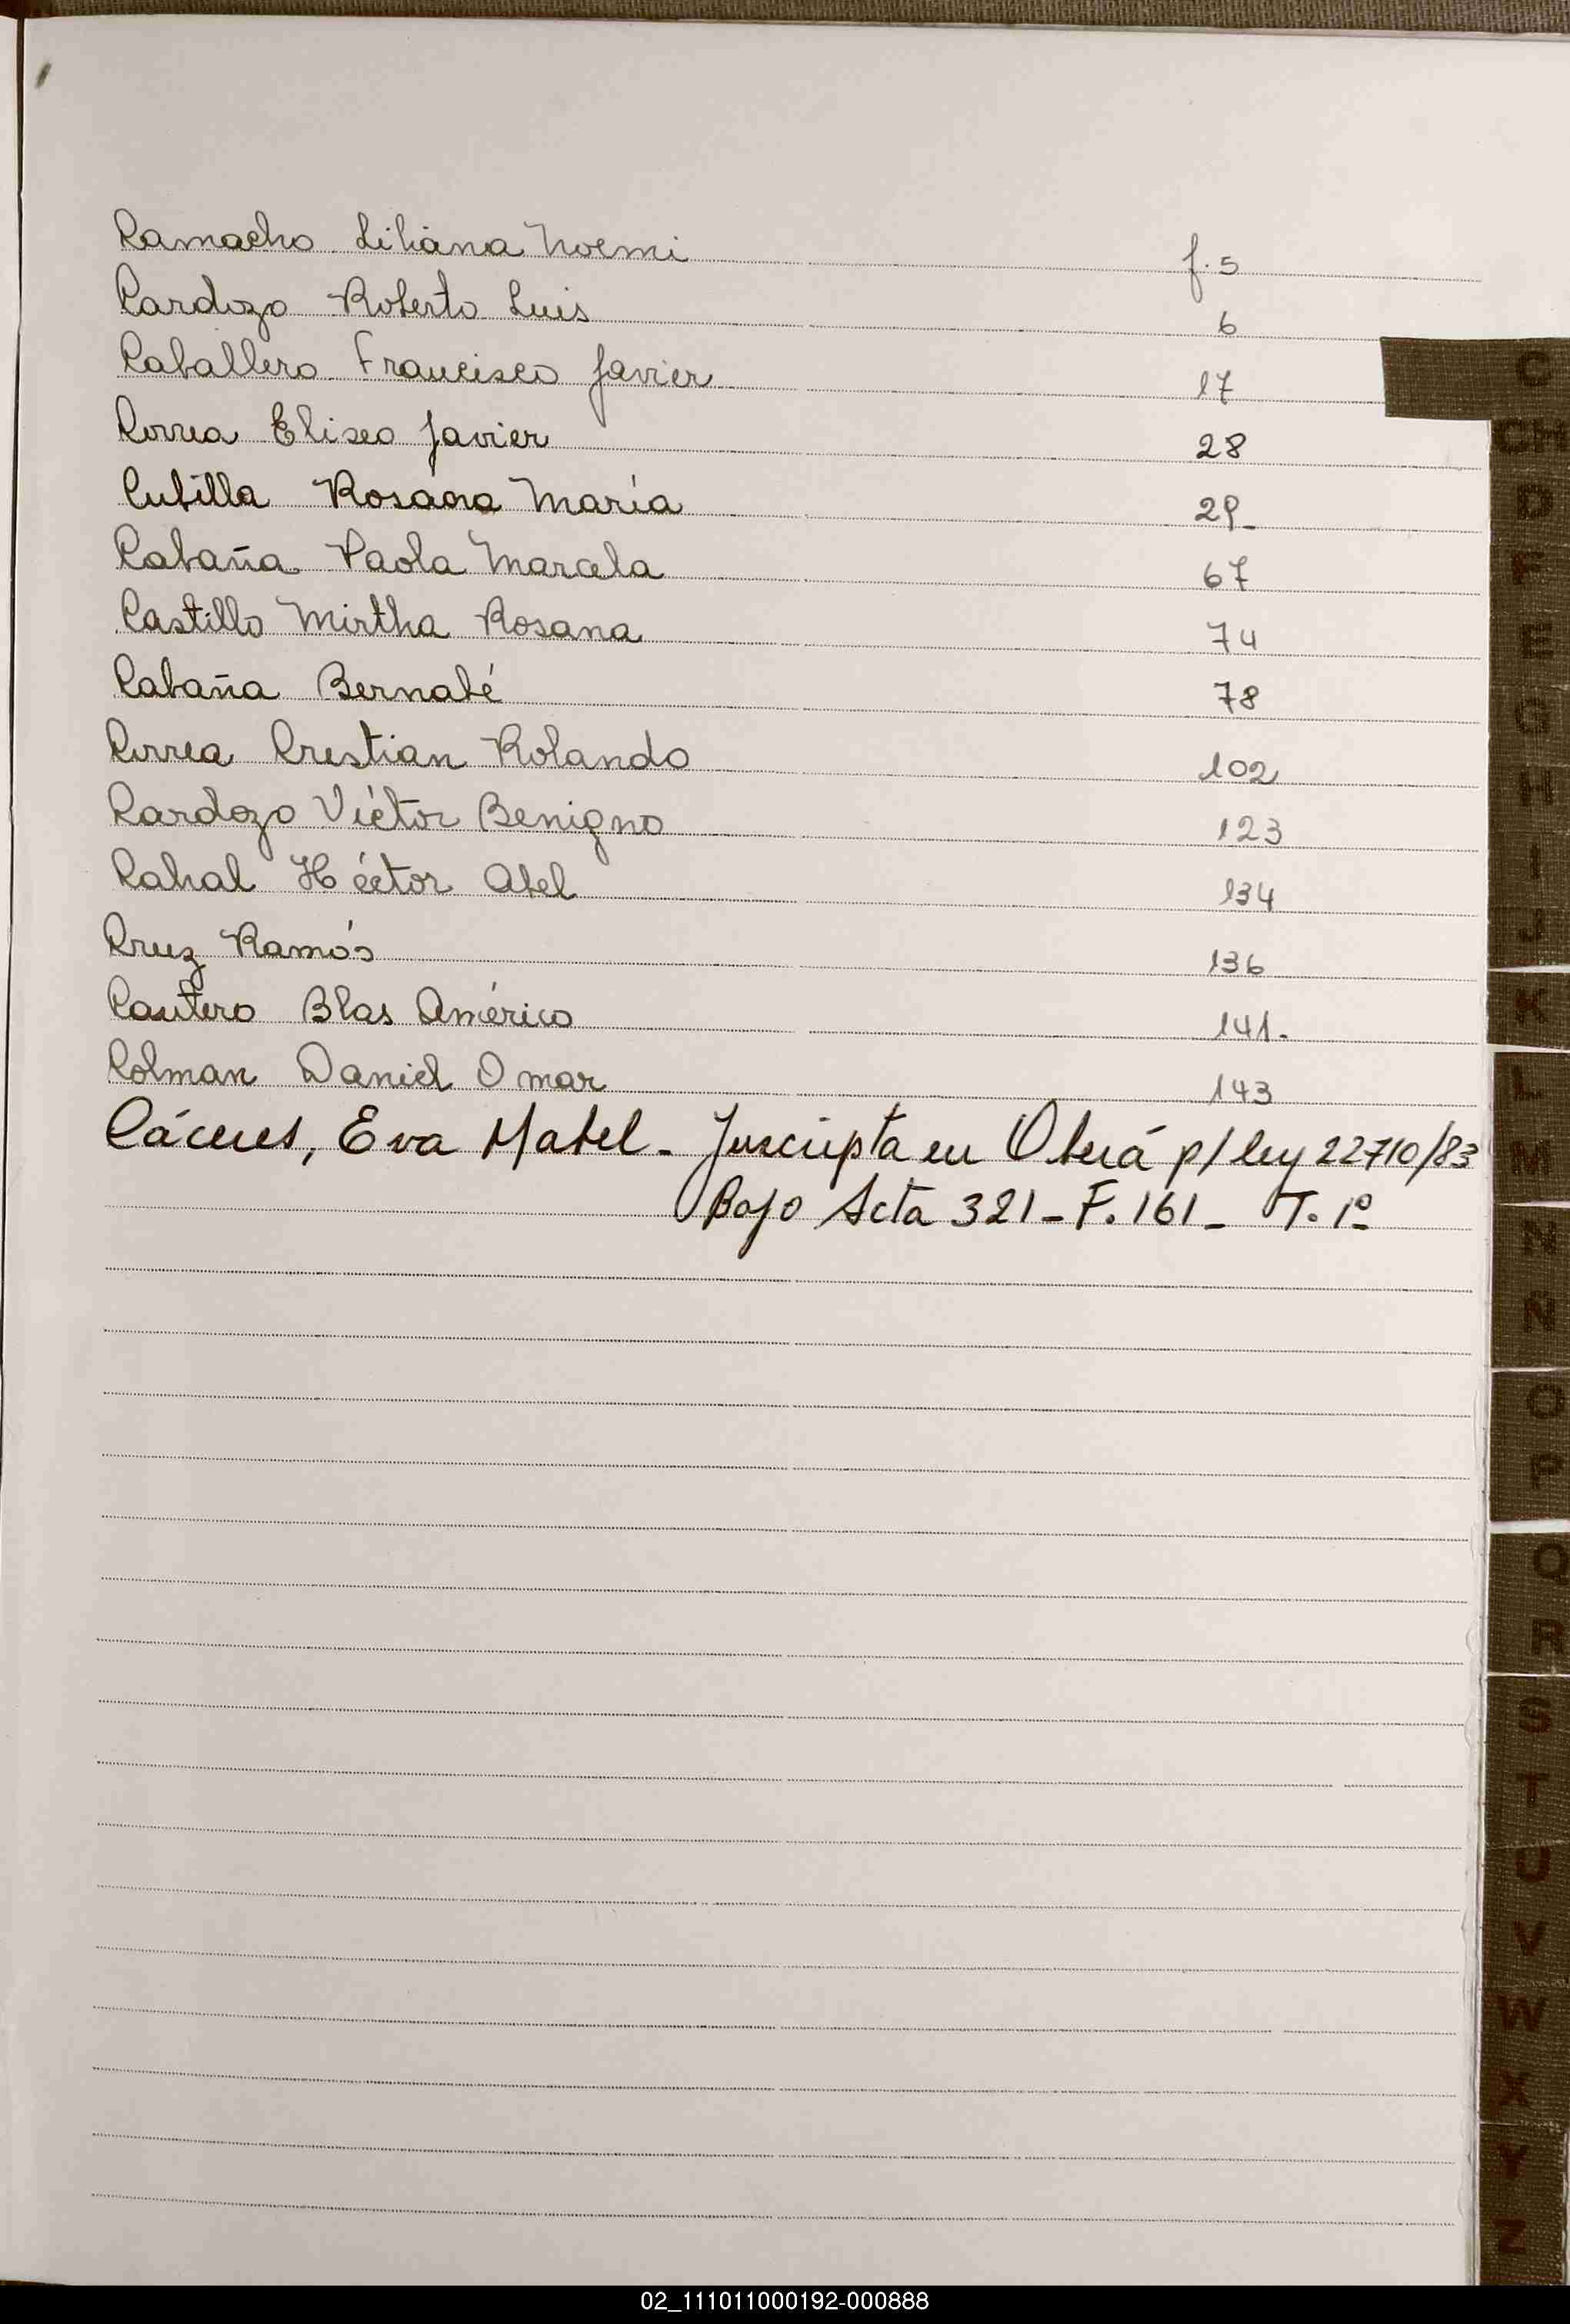 Camacho Liliana Noemi f. 5
Cardozo Roberto Luis 6
Caballero Francisco Javier 17
Correa Eliseo Javier 28
Cubilla Rosana María 29-
Cabaña Paola Marcela 67
Castillo Mirtha Rosana 74
Cabaña Bernabé 78
Correa Crestian Rolando 102
Cardozo Víctor Benigno 123
Cahal Héctor Abel 134
Cruz Ramós 136
Cantero Blas Américo 141.
Colman Daniel Omar 143
Cáceres, Eva Mabel - Inscripta en Oberá p/ ley 22710/83
Bajo Acta 321 - F. 161 - T. 1º
C
CH
D
F
E
G
H
I
J
K
L
M
N
Ñ
O
P
Q
R
S
T
U
V
W
X
Y
Z
02_111011000192-000888